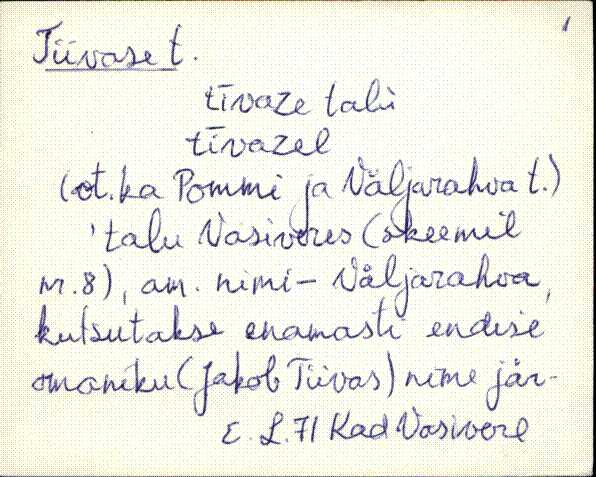 1
Tiivase t.
tīvaze talù
tīvazel
(vt. ka Pommi ja Väljarahva t.)
'talu Vasiveres (skeemil
nr. 8), am. nimi – Väljarahva,
kutsutakse enamasti endise
omaniku (Jakob Tiivas) nime jär-
E. L. 71 Kad Vasivere